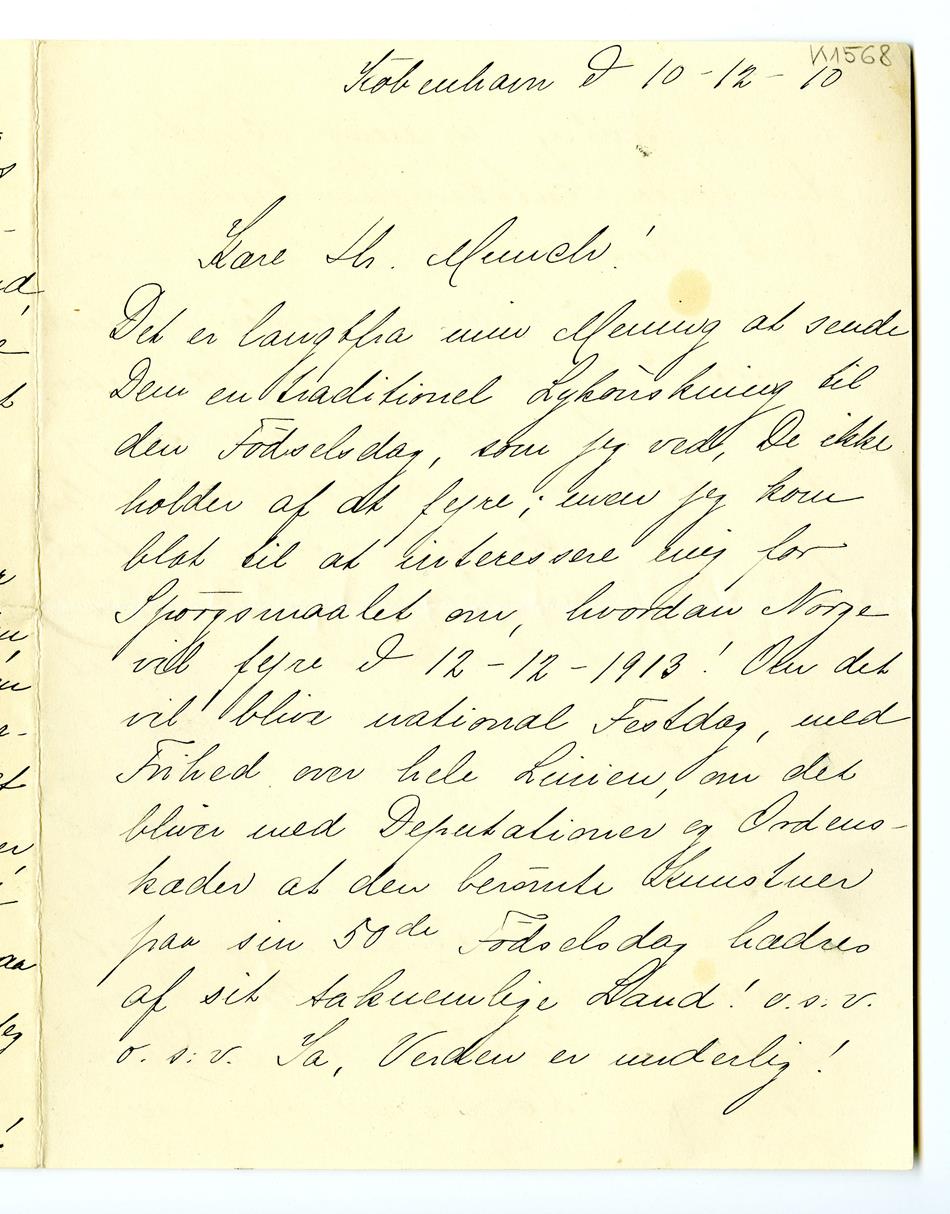 K1568
København d 10-12-10
Kære Hr. Munch!
Det er langtfra min Mening at sende
Dem en traditionel Lykönskning til
den Födselsdag, som jeg ved, De ikke
holder af at fejre; men jeg kom
blot til at interessere mig for
Spörgsmaalet om, hvordan Norge
vil fejre d 12-12-1913! Om det
vil blive national Festdag, med
Frihed over hele Linien, om det
bliver med Deputationer og Ordens-
kæder at den berömte Kunstner
paa sin 50de Födselsdag hædres
af sit taknemlige Land! o.s.v.
o.s.v. Ja, Verden er underlig!